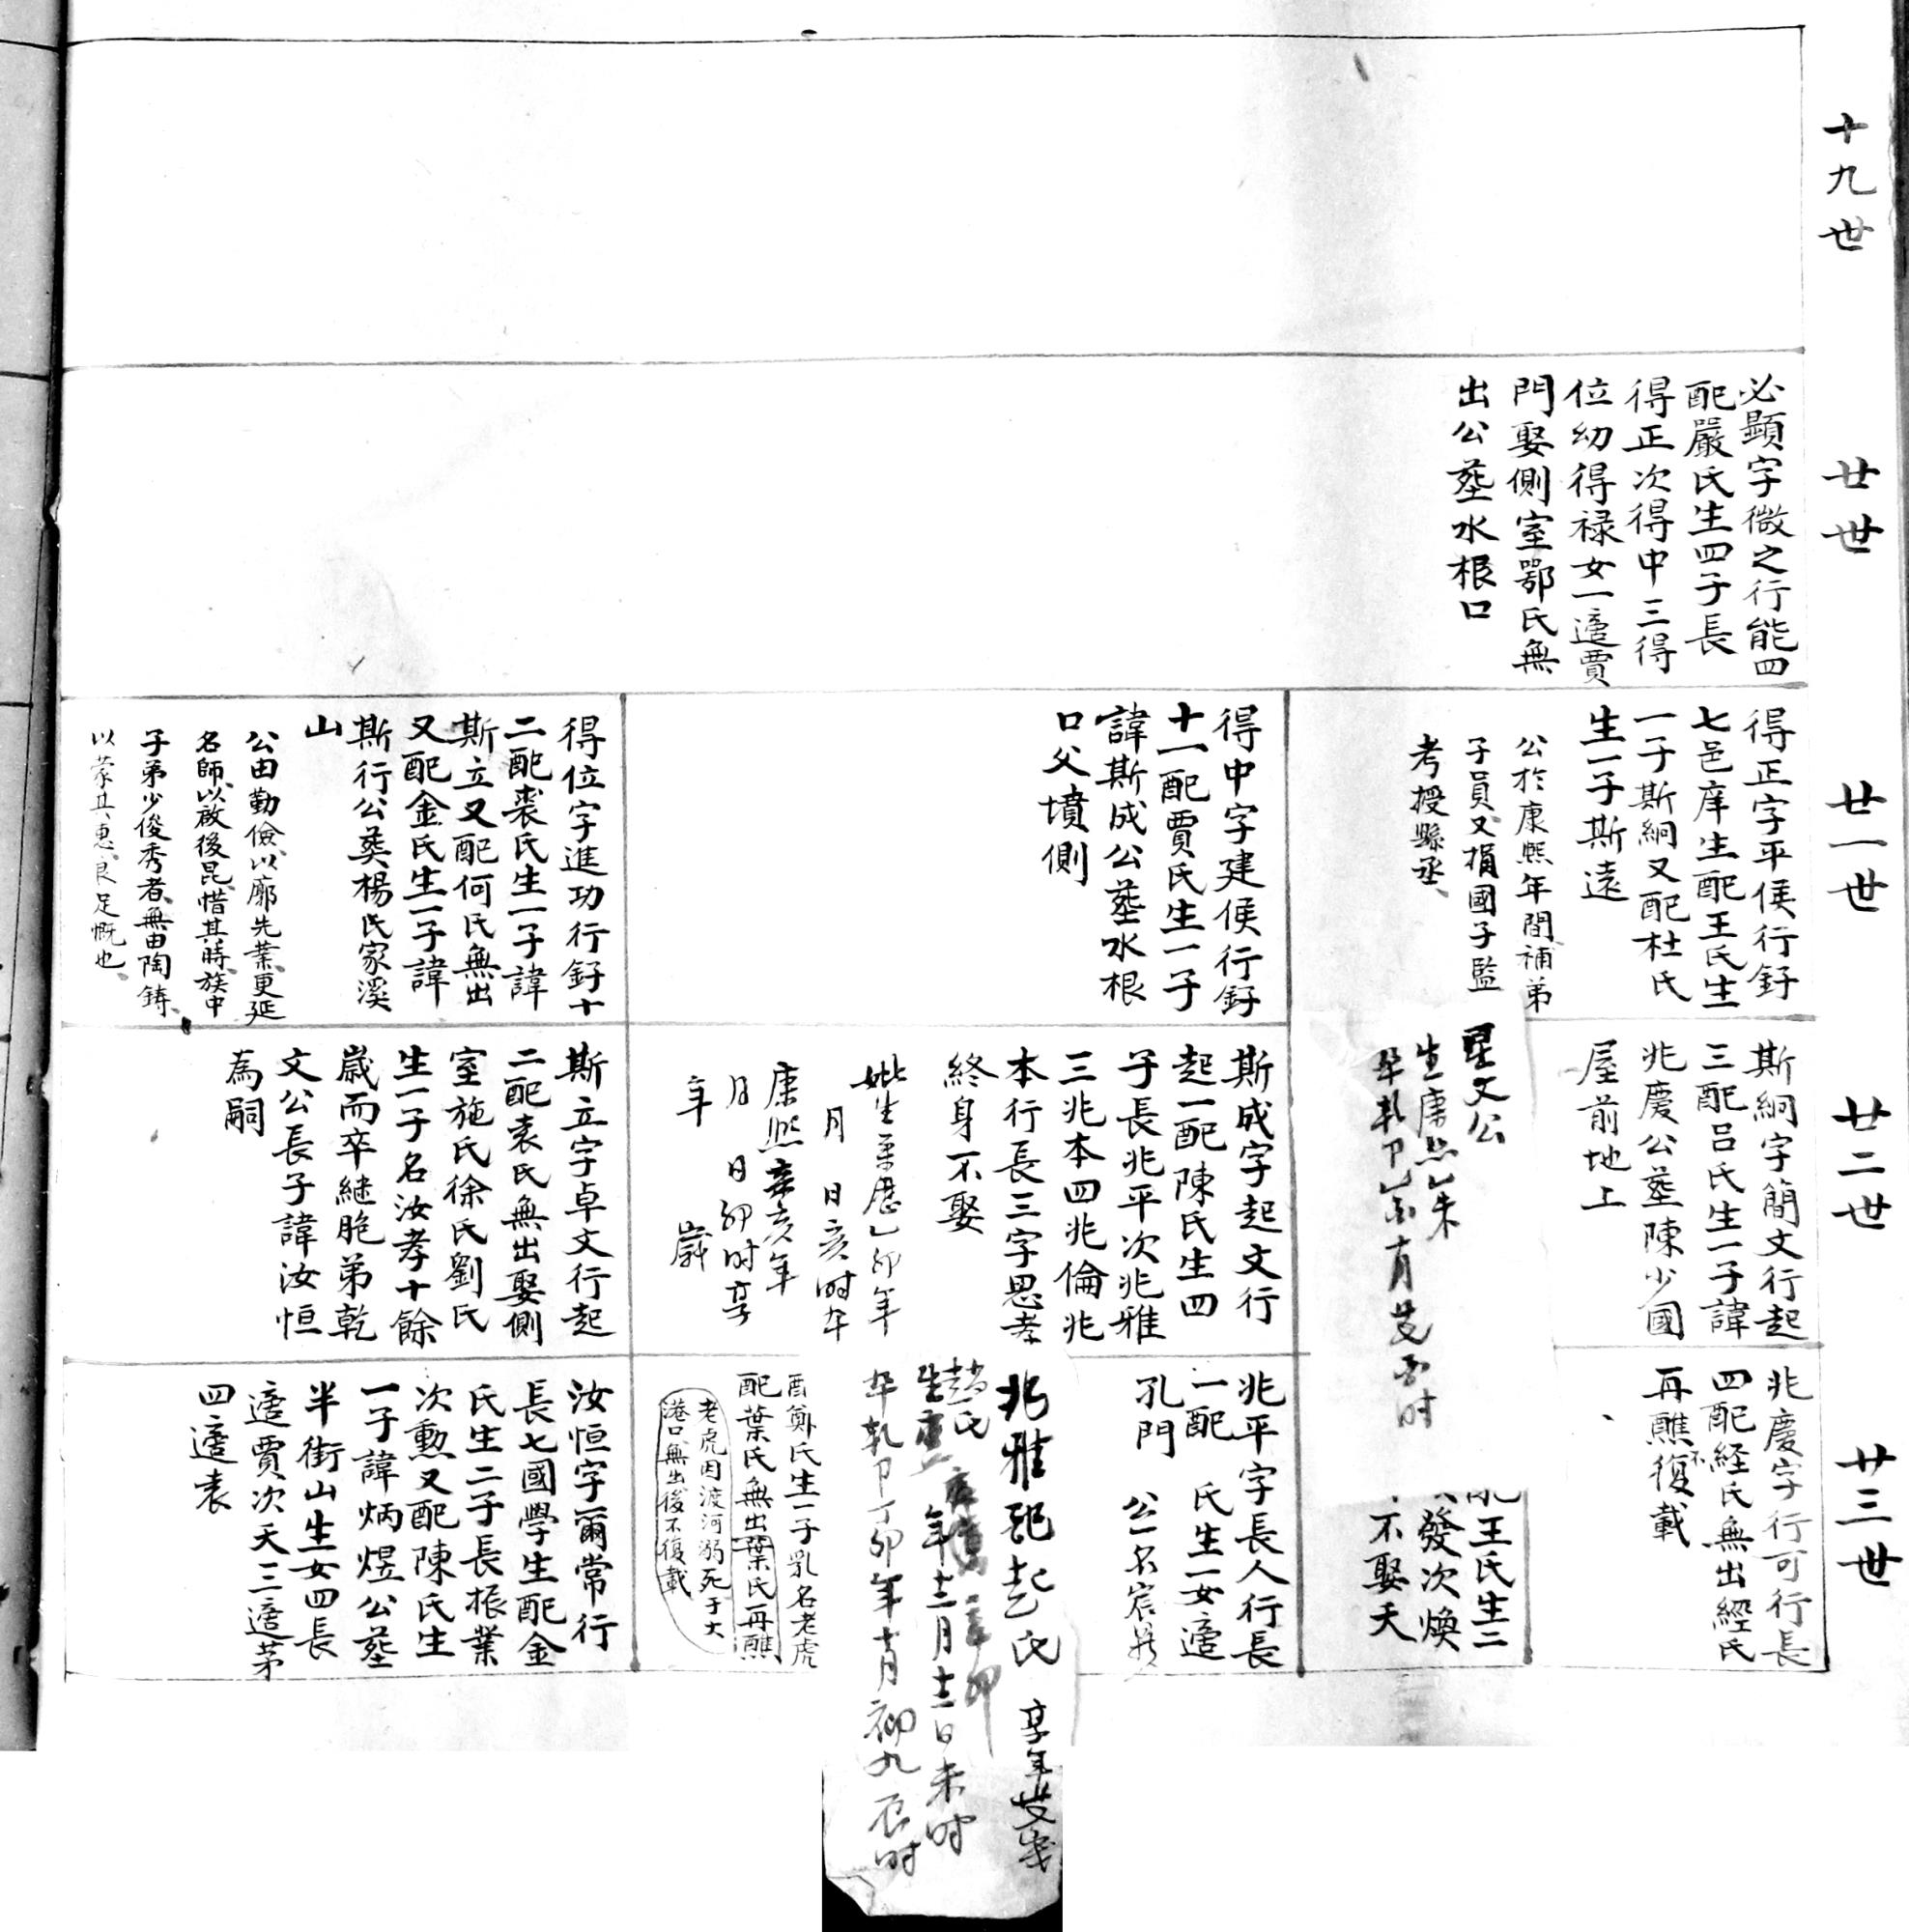 十九世
廿世
必顯字微之行能四
配嚴氏生四子長
得正次得中三得
位幼得禄女一適賈
門娶側室鄂氏無
出公塟水根口
廿一世
得正字平侯行釨
七邑庠生配王氏生
一子斯絅又配杜氏
生一子斯遠
公於康熙年間補弟
子員又捐國子監
考授縣丞
得中字建侯行釨
十一配賈氏生一子
諱斯成公塟水根
口父墳側
得位字進功行釨十
二配裘氏生一子諱
斯立又配何氏無出
又配金氏生一子諱
斯行公葬楊氏家溪
山
公由勤儉以廓先業更延
名師以啟後昆惜其時族中
子弟少俊秀者無由陶鋳
以蒙其惠良足慨也
廿二世
斯絅字簡文行起
三配呂氏生一子諱
兆慶公塟陳少國
屋前地上
星文公
生康
卒乾 月 时
斯成字起文行
起一配陳氏生四
子長兆平次兆雅
三兆本四兆倫兆
本行長三字思孝
終身不娶
妣生 乙卯年
月 日亥时卒
康熙 亥年
月 日卯时享
年 歲
斯立字卓文行起
二配袁氏無出娶側
室施氏徐氏劉氏
生一子名汝孝十餘
歲而卒継胞弟乾
文公長子諱汝恒
為嗣
廿三世
兆慶字行可行長
四配経氏無出經氏
再醮不復載
王氏生二
發次煥
不娶夭
兆平字長人行長
一配 氏生一女適
孔門 公一名
兆雅配趙氏 享年 歲
趙氏
生 年十二月十二日未时
卒乾 丁卯年 月初九辰时
配鄭氏生一子乳名老虎
配葉氏無出葉氏再醮
老虎因渡河溺死于大
港口無出後不復載
汝恒字爾常行
長七國學生配金
氏生二子長振業
次勲又配陳氏生
一子諱炳煜公塟
半街山生女四長
適賈次夭三適茅
四適袁